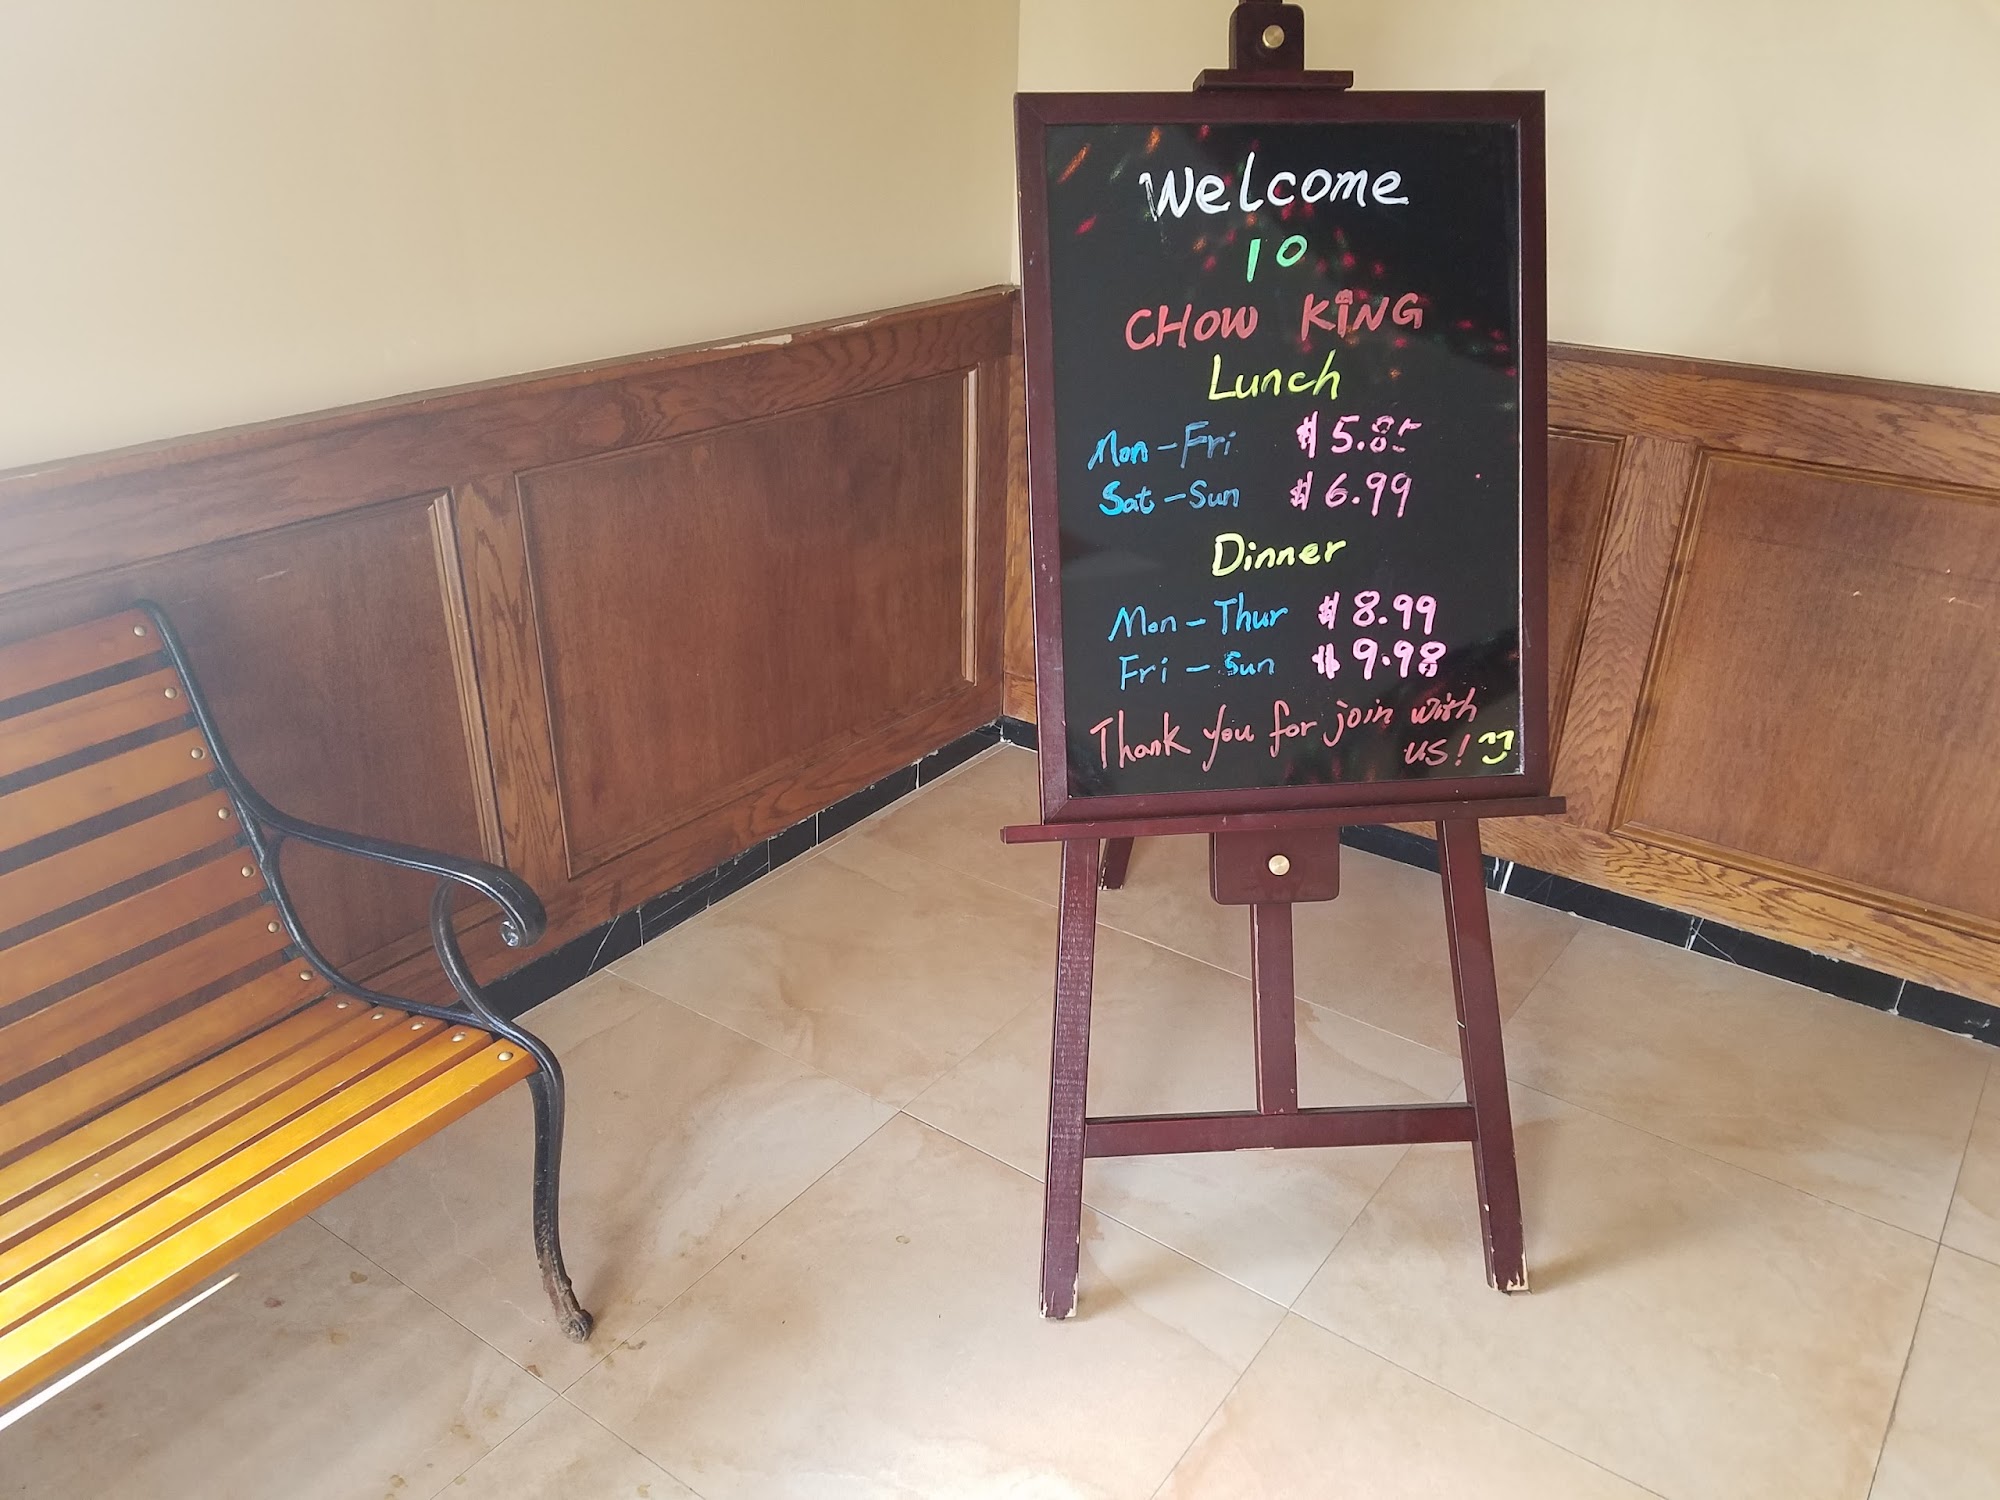 Welcome
to
CHOW KING
Lunch
Mon-Fri $5.85
Sat-Sun $6.99
Dinner
Mon-Thur $8.99
Fri-Sun $9.98
Thank you for join with
us!